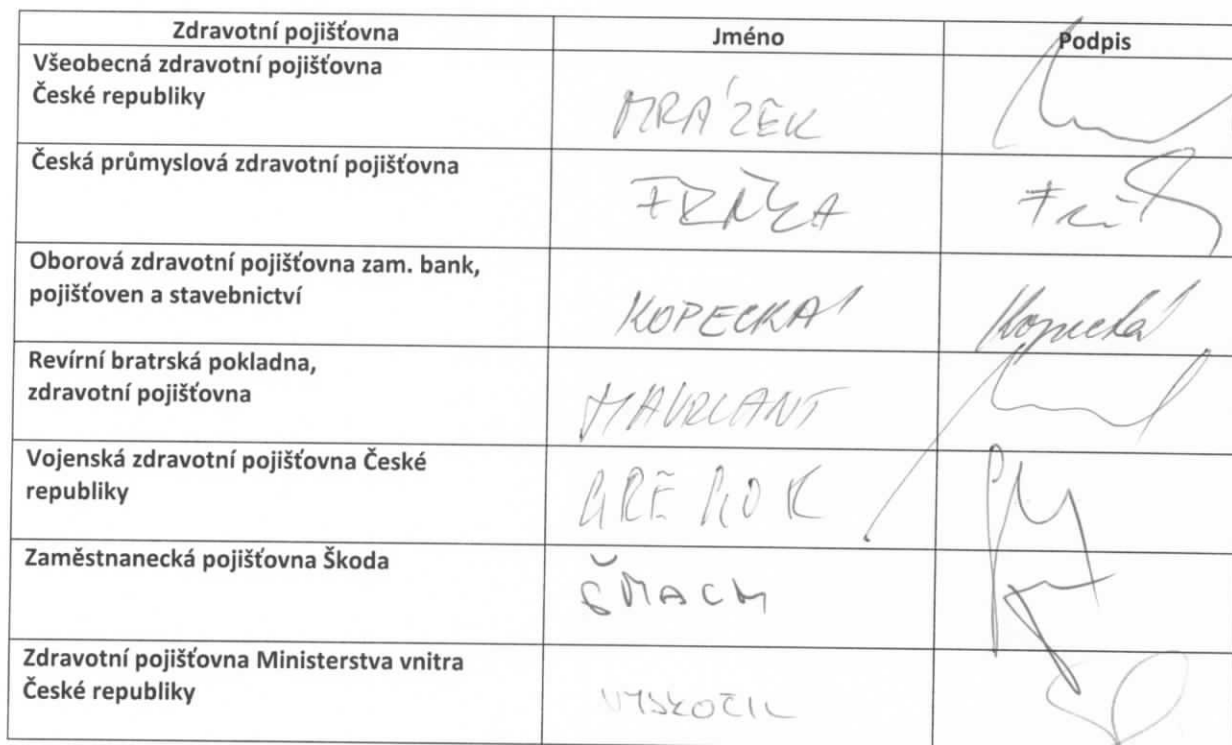 Zdravotní pojišťovna Jméno Podpis
Všeobecná zdravotní pojišťovna
České republiky
MRÁZEK
Česká průmyslová zdravotní pojišťovna
Oborová zdravotní pojišťovna zam. bank,
pojišťoven a stavebnictví
KOPECKÁ Kopecká
Revírní bratrská pokladna,
zdravotní pojišťovna
Vojenská zdravotní pojišťovna České
republiky
Zaměstnanecká pojišťovna Škoda
ŠMACH
Zdravotní pojišťovna Ministerstva vnitra
České republiky
VYSKOČIL